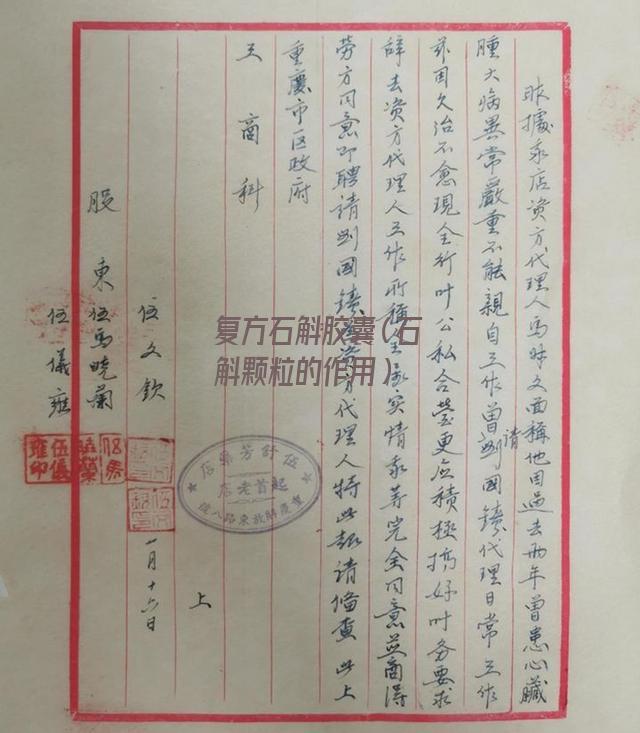 昨據我店资方代理人馬时文面稱他因過去两年曾患心臟
腫大病異常嚴重不能親自工作曾請刘國鑄代理日常工作
兹因久治不愈現全行叶公私合营更应積極搞好叶务要求
辞去资方代理人工作所稱全系实情我等完全同意並商得
劳方同意即聘請刘國鑄為资方代理人特此報請俻查 此上
重慶市区政府
工商科
股東 伍文欽
伍馬曉蘭
伍儀雍
上
一月十六日
伍舒芳藥店
起首老店
重慶解放東路八號
伍儀雍印
复方石斛胶囊(石
斛颗粒的作用)